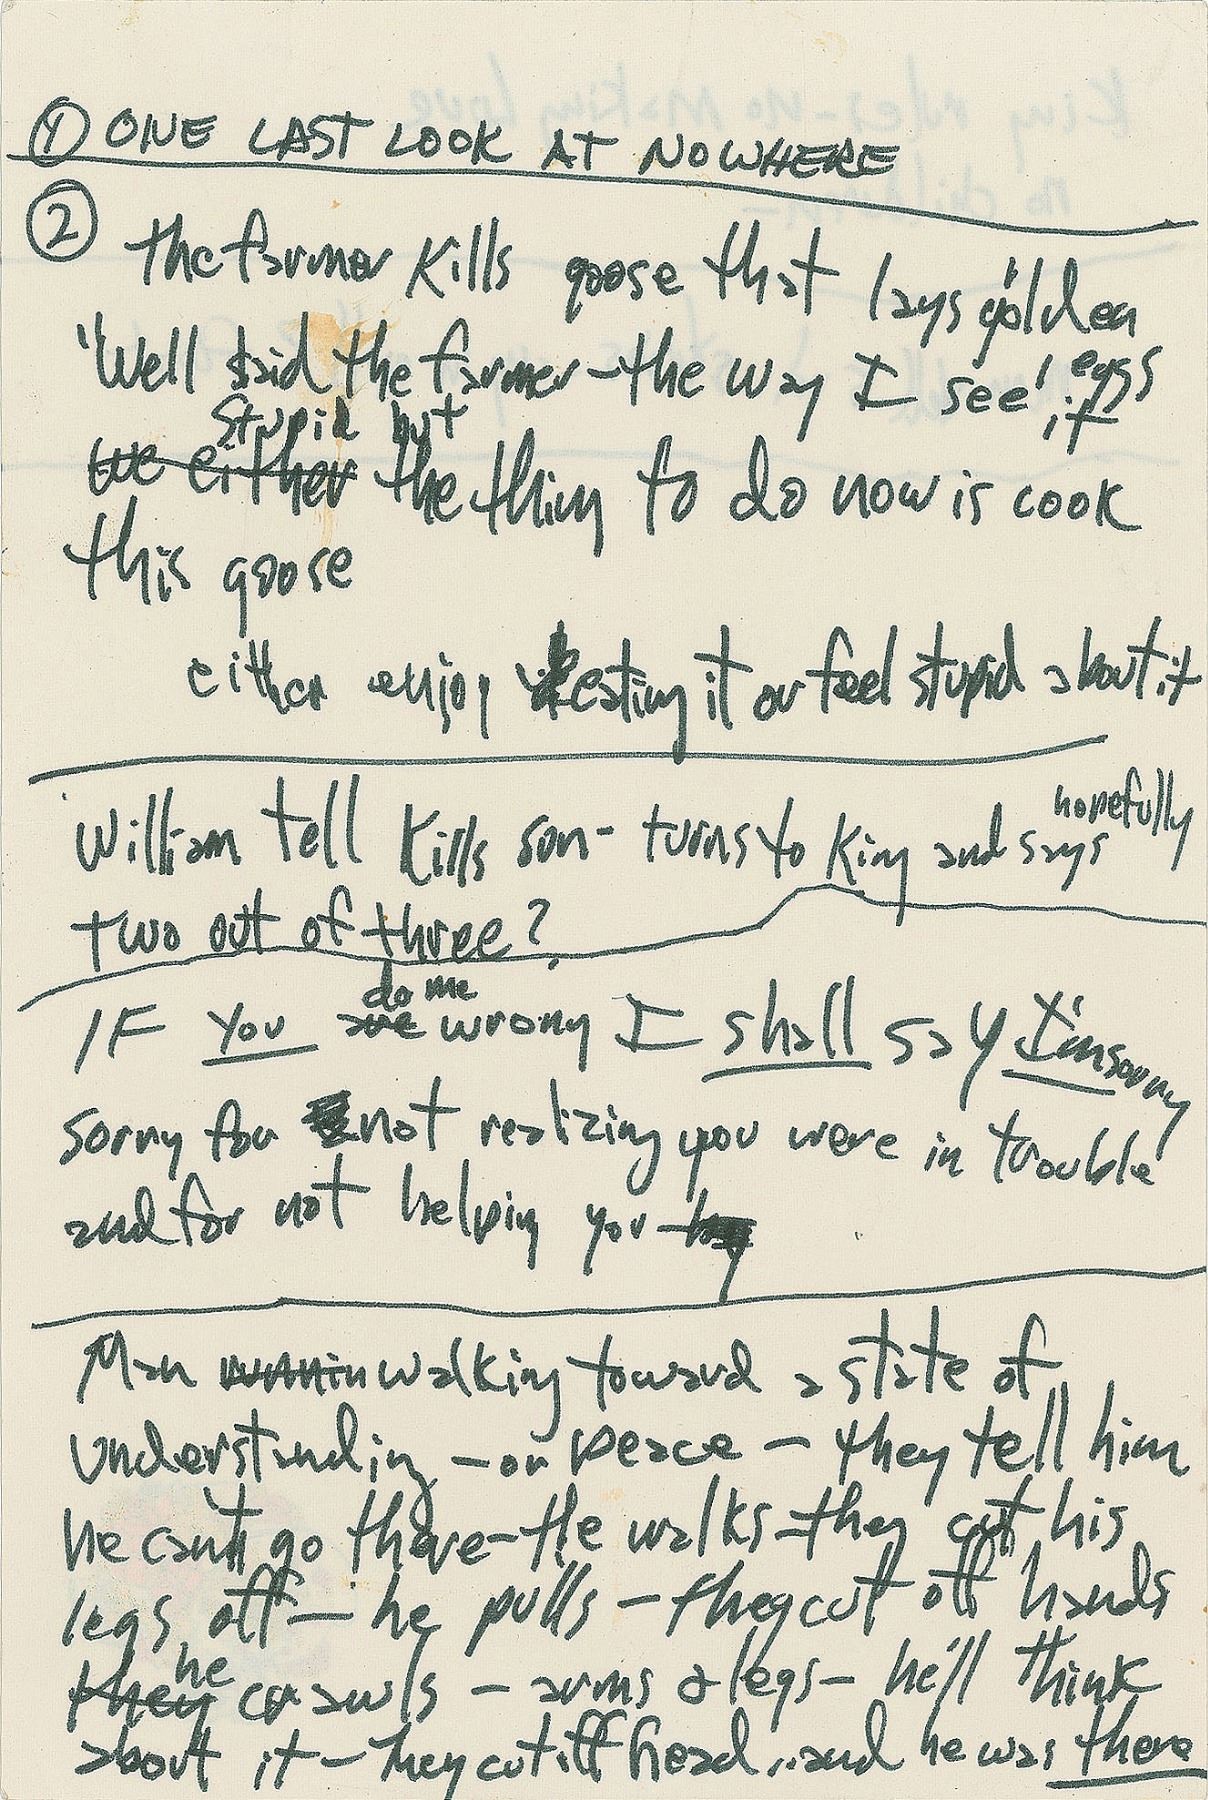 ① ONE LAST LOOK AT NOWHERE
② the farmer kills goose that lays golden eggs
"Well said the farmer - the way I see it
stupid but
we either the thing to do now is cook
this goose
either enjoy eating it or feel stupid about it
hopefully
William tell kills son - turns to King and says
two out of three?
do me
IF you are wrong I shall say I'm sorry
sorry for not realizing you were in trouble
and for not helping you
Man walking toward a state of
understanding - or peace - they tell him
he can't go there - He walks - they cut his
legs off - he pulls - they cut off hands
he
they crawls - arms & legs - he'll think
about it - they cut off head.. and he was there